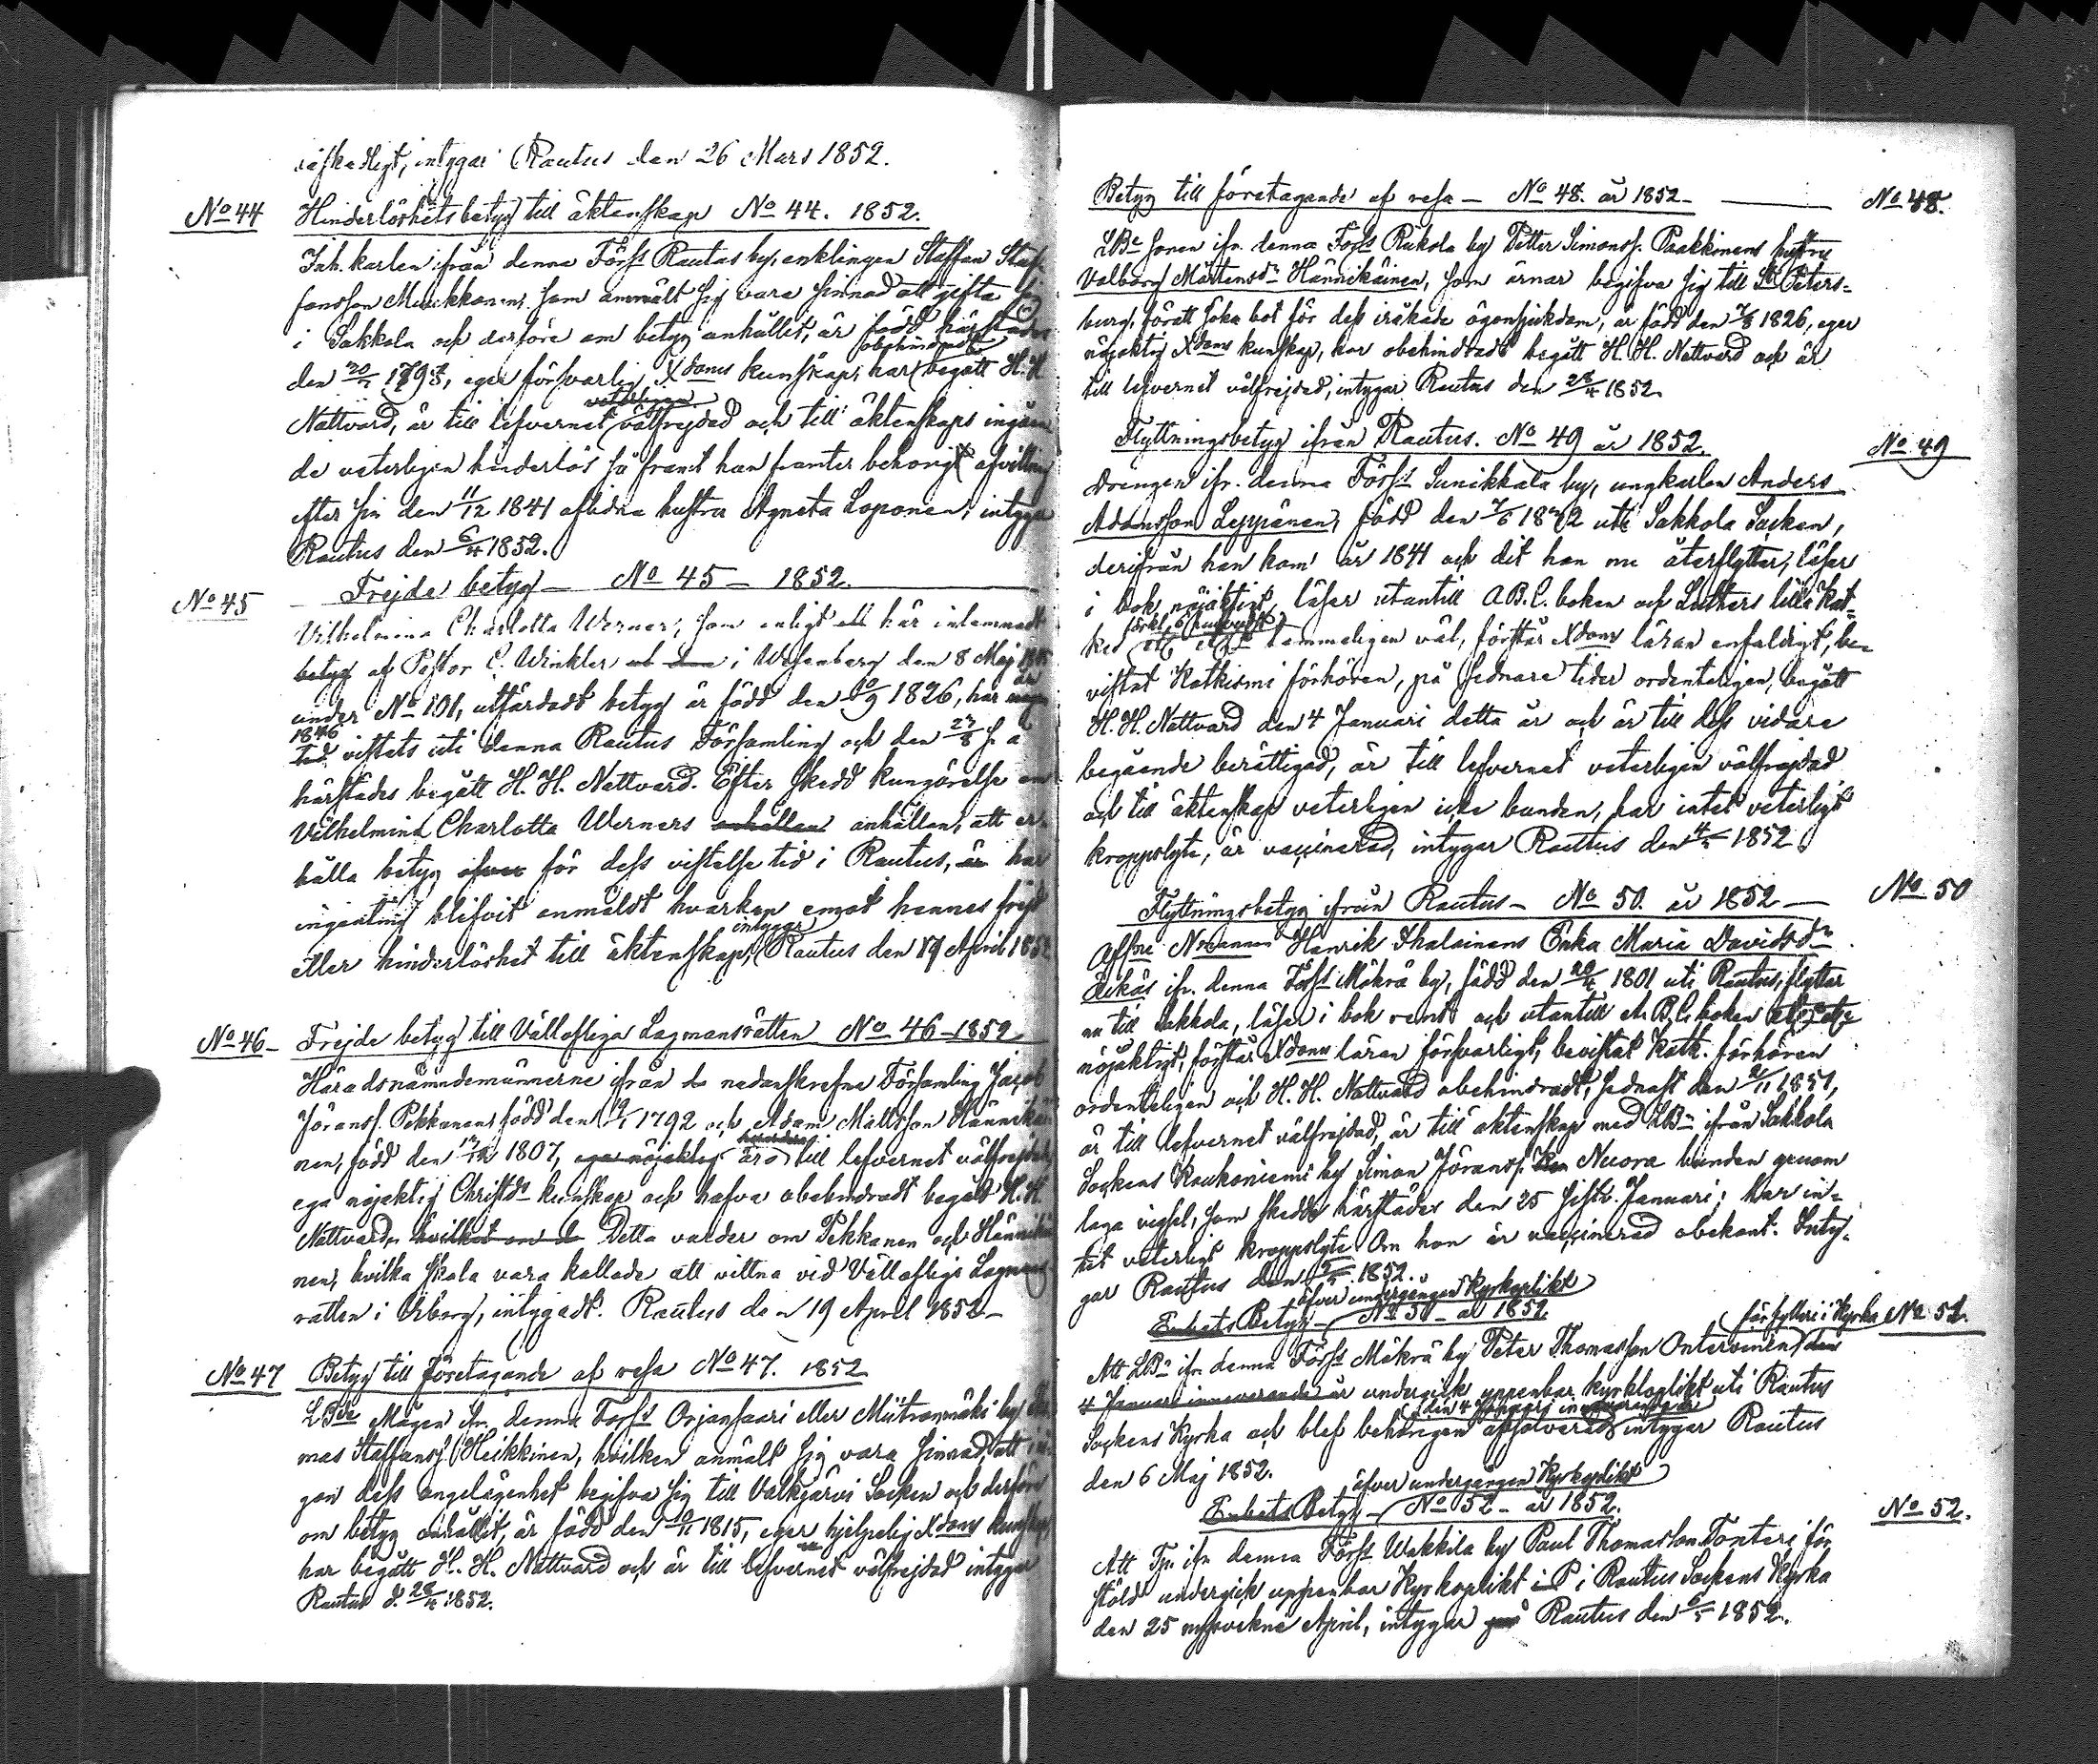 räskeligt, intygar Rautus den 26 Mars 1852.
No 44 Hinderlöshetsbetyg till äktenskap No 44. 1852.
Inh. karlen ifrån denna Förs:s Rautus by, enklingen Staffan Staf-
fansson Muukkonen, som anmält sig vara sinnad att gifta sig
i Sakkola och derföre om betyg anhållit, är född härstädes
obehindradt
den 20/ 179, eger försvarlig Xdoms kunskap, har begått H. H.
veterligen
Nattvard, är till lefvernet välfrejdad och till äktenskaps ingåen
de veterligen hinderlös så framt han framter behörig afvittring
efter sin den 11/12 1841 aflidna hustru Agneta Loponen, intygar
Rautus den 6/4 1852.
No 45 Frejde betyg — No 45 — 1852.
Vilhelmina Charlotta Werner, som enligt ett här inlemnadt
betyg af Pastor C. Winkler i Wesenberg den 8 Maj
under No 101, utfärdadt betyg är född den /9 1826, har
1846
tid vistats uti denna Rautus Församling och den 27/8 s. å
härstädes begått H. H. Nattvard. Efter skedd kungörelse om
Vilhelmina Charlotta Werners anhållan anhållan, att er-
hålla betyg öfver för dess vistelse tid i Rautus, är har
ingenting blifvit anmäldt hvarken emot hennes frejd
intygar
eller hinderlöshet till äktenskap, Rautus den 19 April 1852
No 46 Frejde betyg till Vällofliga Lagmansrätten No 46 — 1852
Häradsnämndemännerne ifrån nedanskrefne Församling Jacob
Jöranss. Pekkanen, född den 1792 och Adam Mattsson Hännikäi
nen, född den 1807, ega nöjaktig äro till lefvernet välfrejdade,
ega nöjaktig Christdo kunskap och hafva obehindradt begått H. H.
Nattvard, hvilket Detta varder om Pekkanen och Hännikäi
nen, hvilka skola vara kallade att vittna vid Välloflige Lagmans
rätten i Wiborg, intygadt. Rautus den 19 April 1852 —
No 47 Betyg till företagande af resa No 47. 1852
LBde Mågen ifn. denna Förs:s Orjansaari eller Miitronmäki by
mas Staffanss. Heikkinen, hvilken anmält sig vara sinnad att i nå
gon dess angelägenhet begifva sig till Valkjärvi Socken och derföre
om betyg anhållit, är född den 1815, eger hjelpelig Xdoms kunskap,
har begått H. H. Nattvard och är till lefvernet välfrejdad intygar
Rautus d. 28/4 1852.
Betyg till företagande af resa — No 48. år 1852 — No 48.
LBe sonen ifn. denna Förs:s Riikola by Petter Simonss. Paakkinens hustru
Valborg Mårtensdr Hännikäinen, som ärnar begifva sig till St Peters-
burg, föratt söka bot för dess iråkade ögonsjukdom, är född den 7/8 1826, eger
nöjaktig Xdoms kunskap, har obehindradt begått H. H. Nattvard och är
till lefvernet välfrejdad, intygar Rautus den 28/4 1852.
Flyttningsbetyg ifrån Rautus. No 49 år 1852. No 49
Drengen ifr. denna Förs:s Sunikkala by, ungkarlen Anders
Adamsson Leppänen, född den 7/6 18 2 uti Sakkola Socken,
derifrån han kom år 1841 och dit han nu återflytter, läser
i bok nöjaktigt, läser utantill A.B.C. boken och Luthers lilla Kat-
ked tammeligen väl, förstår Xdoms läran enfaldigt, be-
vistat Katkismi förhören, på sednare tider ordenteligen, begått
H. H. Nattvard den 4 Januari detta år och är till dess vidare
begående berättigad, är till lefvernet veterligen välfrejdad
och till äktenskap veterligen icke bunden, har intet veterligt
kroppslyte, är vaccinerad, intygar Rautus den 4/5 1852.
Flyttningsbetyg ifrån Rautus — No 50. år 1852 — No 50
Affne Nmannen Henrik Ihalainens Enka Maria Davidsdr
ifr. denna Förs:s Mäkrä by, född den 20/ 1801 uti Rautus, flyttar
nu till Sakkola, läser i bok rent och utantill A.B.C. boken
nöjaktigt, förstår Xdoms läran försvarligt, bevistat Katk. förhören
ordenteligen och H. H. Nattvard obehindradt, sednast den 2/11 1851,
är till lefvernet välfrejdad, är till äktenskap med LBn ifrån Sakkola
Sockens Haukoniemi by Simon Jöranss. Nuora bunden genom
laga vigsel, som skedde härstädes den 25 sistl. Januari; har in-
tet veterligt kroppslyte. Om hon är vaccinerad obekant. Inty-
gar Rautus den 5/5 1852.
öfver undergången kyrkoplikt
Embets Betyg — No 51 — år 1852 för fylleri i kyrka No 51.
Att LBn ifn. denna Förs:s Mäkrä by Peter Thomasson Ontervinen den
4 Januari innevarande år undergick uppenbar kyrkoplikt uti Rautus
den 4 Januari innevarande år
Sockens Kyrka och blef behörigen absolverad, intygar Rautus
den 6 Maj 1852.
öfver undergången Kyrkoplikt
Embets Betyg — No 52 — år 1852. No 52.
Att Tjn. ifn. denna Förs:s Wakkila by Paul Thomasson Tonteri för
stöld undergick uppenbar Kyrkoplikt i Rautus Sockens Kyrka
den 25 nästvekne April, intygar Rautus den 6/5 1852.